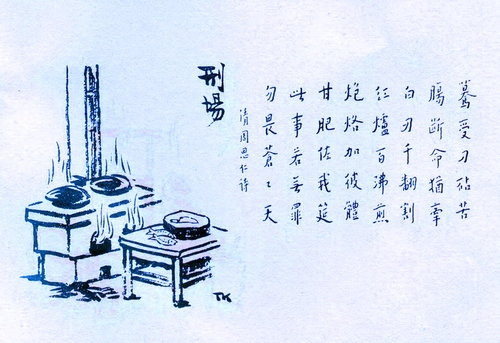 驀受刀砧苦
腸斷命猶牽
白刃千翻割
紅爐百沸煎
炮烙加彼體
甘肥佐我筵
此事若无罪
勿畏蒼々天
清周思仁詩
刑場
TK